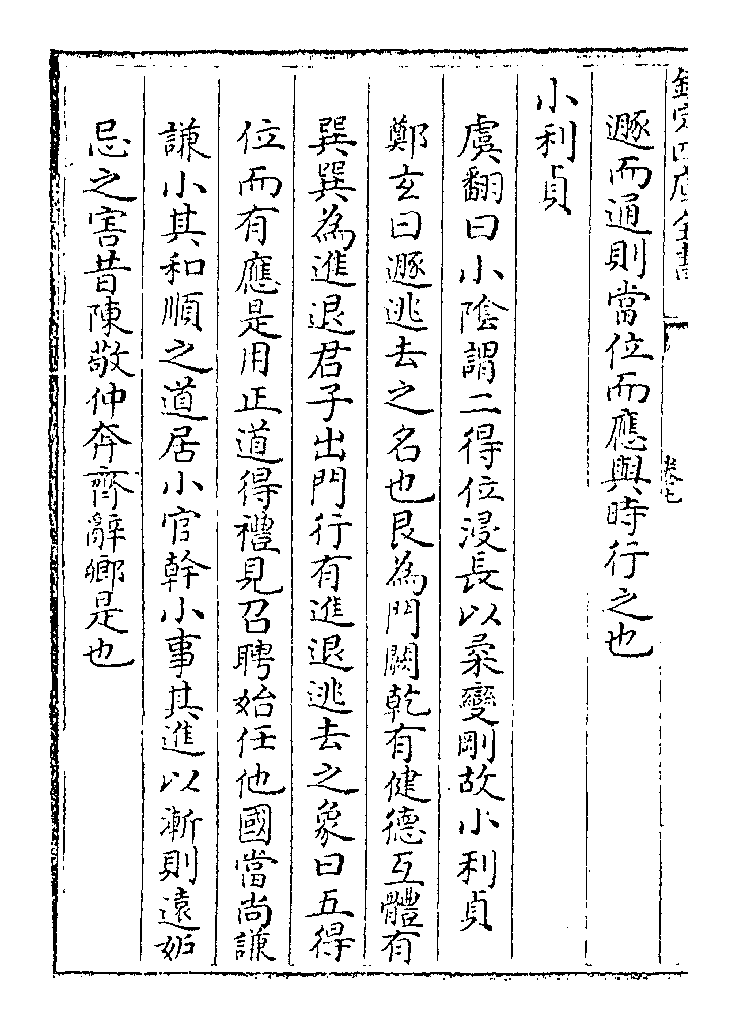 欽定四庫全書
卷七
遯而通則當位而應與時行之也
小利貞
虞翻曰小隂謂二得位浸長以柔變剛故小利貞
鄭玄曰遯逃去之名也艮為門闕乾有健德互體有
巽巽為進退君子出門行有進退逃去之象曰五得
位而有應是用正道得禮見召聘始任他國當尚謙
謙小其和順之道居小官幹小事其進以漸則遠妬
忌之害昔陳敬仲奔齊辭卿是也